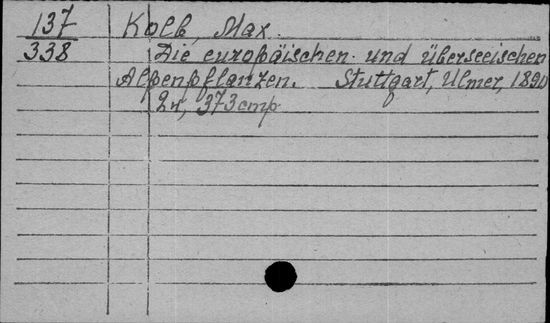 137 Kolb, Max.
338 Die europäischen und überseeischen
Alpenpflanzen. Stuttgart, Ulmer, 1890
373 стр